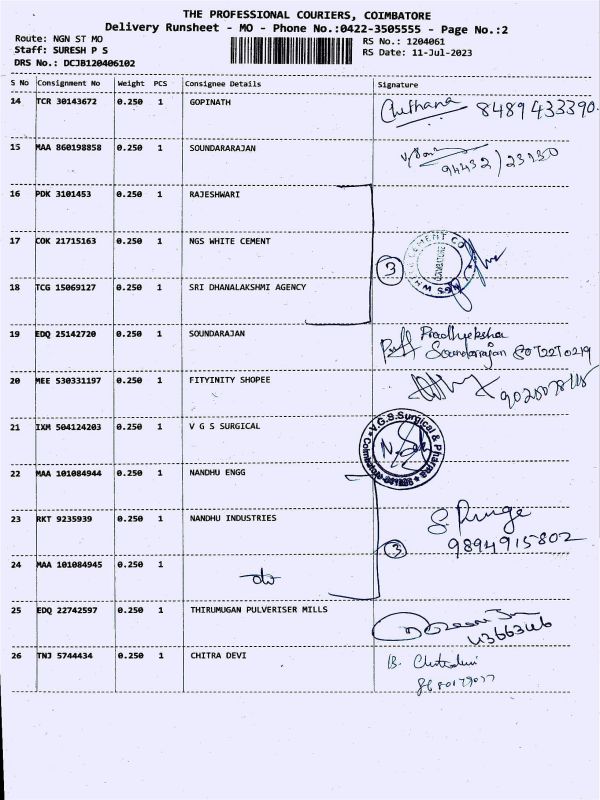 THE PROFESSIONAL COURIERS, COIMBATORE
Delivery Runsheet - MO - Phone No.:0422-3505555 - Page No.:2
Route: NGN ST MO
RS No.: 1204061
Staff: SURESH P S
RS Date: 11-Jul-2023
DRS No.: DCJB120406102
S No Consignment No Weight PCS Consignee Details Signature
14 TCR 30143672 0.250 1 GOPINATH 8489433390
15 MAA 860198858 0.250 1 SOUNDARARAJAN
16 PDK 3101453 0.250 1 RAJESHWARI
17 COK 21715163 0.250 1 NGS WHITE CEMENT 3
COIMBATORE
18 TCG 15069127 0.250 1 SRI DHANALAKSHMI AGENCY
19 EDQ 25142720 0.250 1 SOUNDARAJAN
Soundarajan
20 MEE 530331197 0.250 1 FITYINITY SHOPEE
21 IXM 504124203 0.250 1 V G S SURGICAL
V.G.S.Surgical & Pharma
22 MAA 101084944 0.250 1 NANDHU ENGG
23 RKT 9235939 0.250 1 NANDHU INDUSTRIES
9894915802
3
24 MAA 101084945 0.250 1 do
25 EDQ 22742597 0.250 1 THIRUMUGAN PULVERISER MILLS
26 TNJ 5744434 0.250 1 CHITRA DEVI